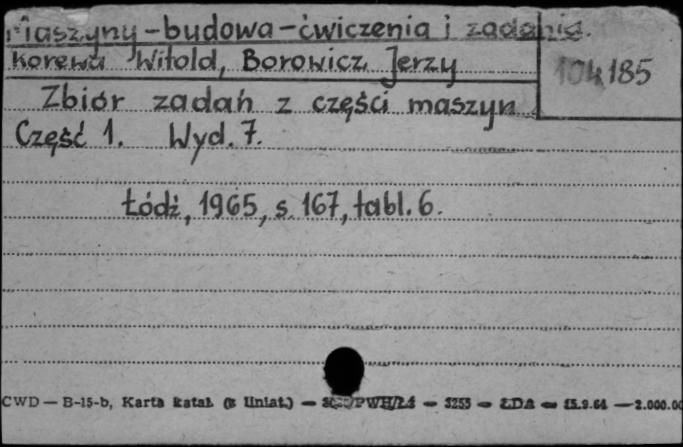 Maszyny-budowa-ćwiczenia i zadania.
Korewa Witold, Borowicz Jerzy
104185
Zbiór zadań z części maszyn
Część 1. Wyd. 7.
Łódź, 1965, s. 167, tabl. 6.
CWD — B-15-b, Karta katal. (z liniat.) — PWH/Łś — 3255 — ŁDA — 15.9.64 — 2.000.00